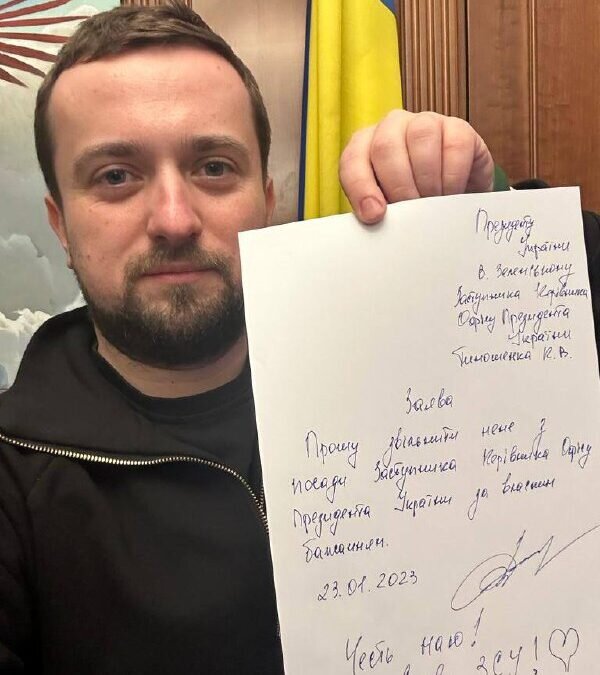 Президенту
України
В. Зеленському
Заступника Керівника
Офісу Президента
України
Тимошенка К. В.
Заява
Прошу звільнити мене з
посади Заступника Керівника Офісу
Президента України за власним
бажанням.
23.01.2023
Честь маю!
ЗСУ!